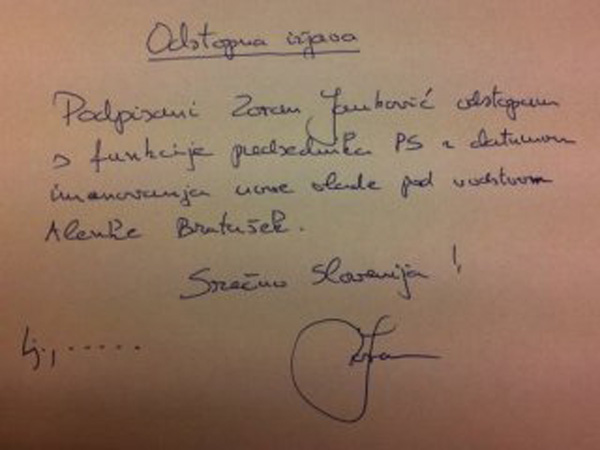 Odstopna izjava
Podpisani Zoran Janković odstopam
s funkcije predsednika PS z datumom
imenovanja nove vlade pod vodstvom
Alenke Bratušek.
Srečno Slovenija!
Lj., .....